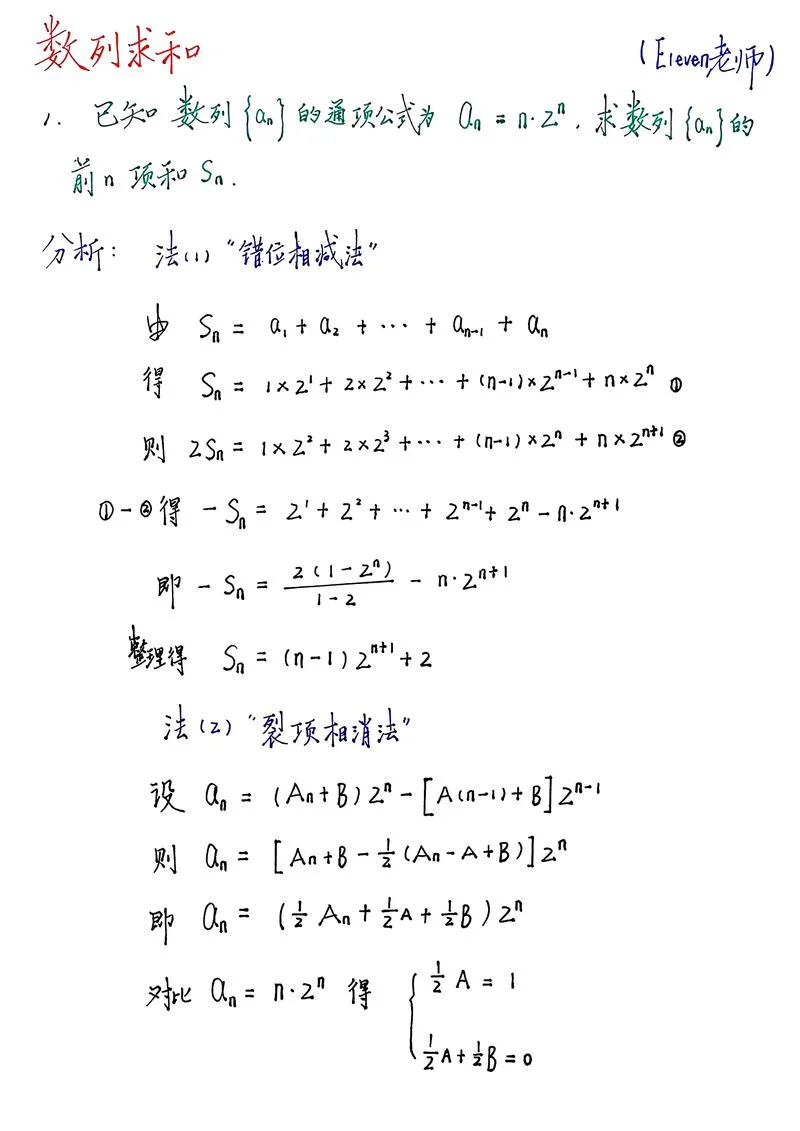 数列求和
(Eleven老师)
1. 已知数列{aₙ}的通项公式为 aₙ = n·2ⁿ, 求数列{aₙ}的
前n项和 Sₙ.
分析: 法(1) "错位相减法"
由 Sₙ = a₁ + a₂ + ··· + aₙ₋₁ + aₙ
得 Sₙ = 1×2¹ + 2×2² + ··· + (n-1)×2ⁿ⁻¹ + n×2ⁿ ①
则 2Sₙ = 1×2² + 2×2³ + ··· + (n-1)×2ⁿ + n×2ⁿ⁺¹ ②
①-②得 -Sₙ = 2¹ + 2² + ··· + 2ⁿ⁻¹ + 2ⁿ - n·2ⁿ⁺¹
即 -Sₙ = 2(1-2ⁿ)/(1-2) - n·2ⁿ⁺¹
整理得 Sₙ = (n-1)2ⁿ⁺¹ + 2
法(2) "裂项相消法"
设 aₙ = (An+B)2ⁿ - [A(n-1)+B]2ⁿ⁻¹
则 aₙ = [An+B - ½(An-A+B)]2ⁿ
即 aₙ = (½An + ½A + ½B)2ⁿ
对比 aₙ = n·2ⁿ 得 { ½A = 1
½A + ½B = 0